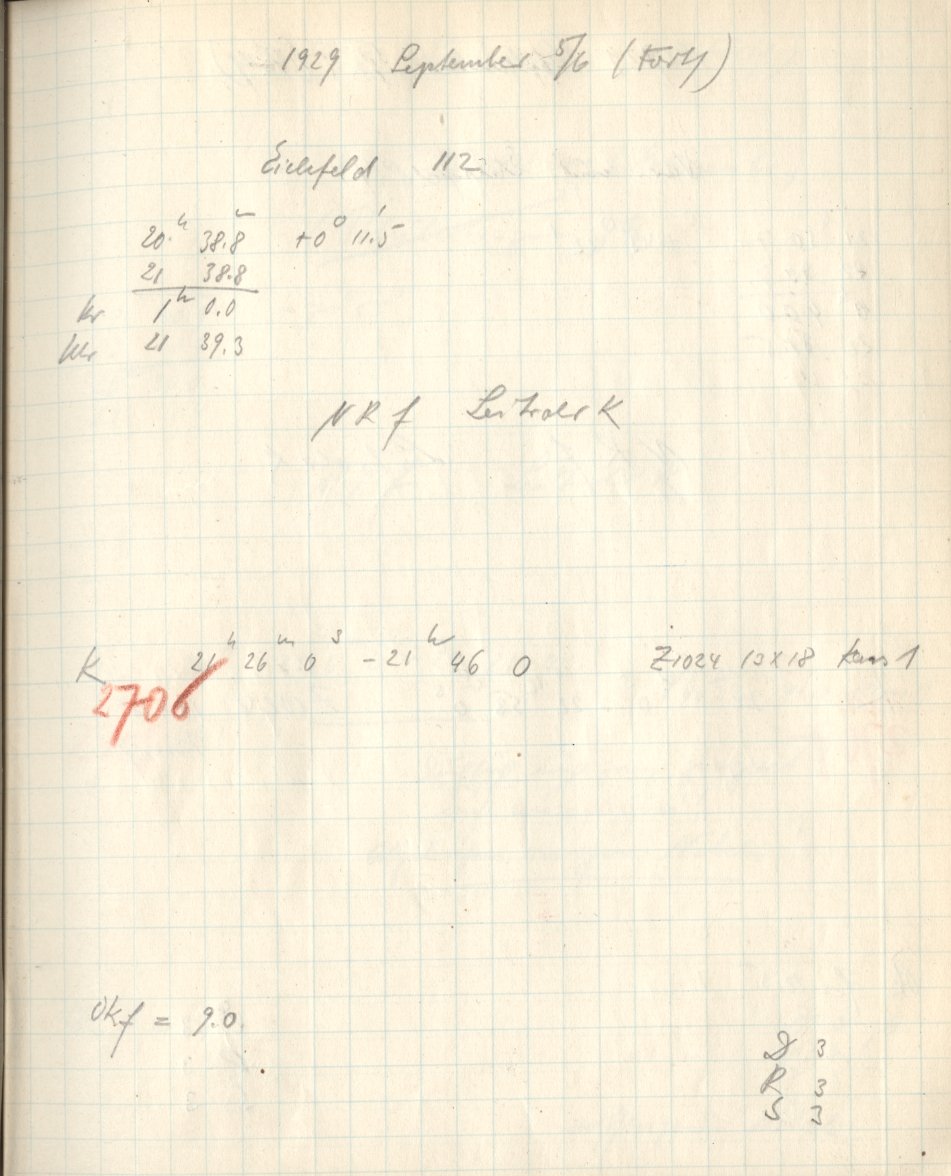 1929 September 5/6 (Forts)
Eichfeld 112
20h 38.8m +0° 11.5'
21 38.8
1h 0.0
21 39.3
NRf Leitrohr K
K 21h 26m 0s - 21h 46 0 Z1024 13x18 Kass 1
2706
Okf = 9.0
D 3
R 3
S 3